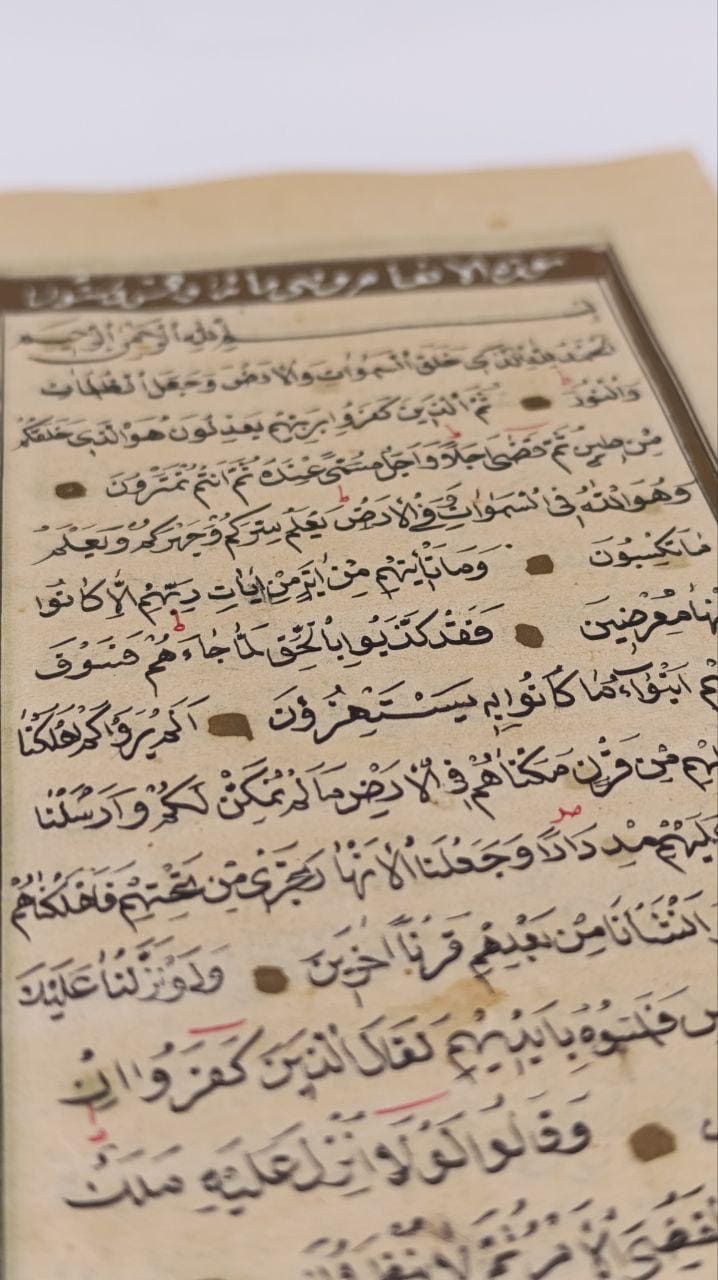 سورة الانعام وهى مائة و وستون
بسم الله الرحمن الرحيم
اَلْحَمْدُ لِلّٰهِ الَّذِى خَلَقَ السَّمٰوَاتِ وَالْاَرْضَ وَجَعَلَ الظُّلُمَاتِ
وَالنُّورَ ثُمَّ الَّذِينَ كَفَرُوا بِرَبِّهِمْ يَعْدِلُونَ هُوَ الَّذِى خَلَقَكُمْ
مِنْ طِينٍ ثُمَّ قَضٰى اَجَلًا وَاَجَلٌ مُسَمًّى عِنْدَهُ ثُمَّ اَنْتُمْ تَمْتَرُونَ
وَهُوَ اللّٰهُ فِى السَّمٰوَاتِ وَفِى الْاَرْضِ يَعْلَمُ سِرَّكُمْ وَجَهْرَكُمْ وَيَعْلَمُ
مَا تَكْسِبُونَ وَمَا تَأْتِيهِمْ مِنْ اٰيَةٍ مِنْ اٰيَاتِ رَبِّهِمْ اِلَّا كَانُوا
عَنْهَا مُعْرِضِينَ فَقَدْ كَذَّبُوا بِالْحَقِّ لَمَّا جَاءَهُمْ فَسَوْفَ
اَنْبٰٓؤُا مَا كَانُوا بِهِ يَسْتَهْزِؤُنَ اَلَمْ يَرَوْا كَمْ اَهْلَكْنَا
مِنْ قَرْنٍ مَكَّنَّاهُمْ فِى الْاَرْضِ مَا لَمْ نُمَكِّنْ لَكُمْ وَاَرْسَلْنَا
عَلَيْهِمْ مِدْرَارًا وَجَعَلْنَا الْاَنْهَارَ تَجْرِى مِنْ تَحْتِهِمْ فَاَهْلَكْنَاهُمْ
وَاَنْشَأْنَا مِنْ بَعْدِهِمْ قَرْنًا اٰخَرِينَ وَلَوْ نَزَّلْنَا عَلَيْكَ
فَلَمَسُوهُ بِاَيْدِيهِمْ لَقَالَ الَّذِينَ كَفَرُوا اِنْ
وَقَالُوا لَوْلَا اُنْزِلَ عَلَيْهِ مَلَكٌ
لَقُضِىَ الْاَمْرُ ثُمَّ لَا يُنْظَرُونَ